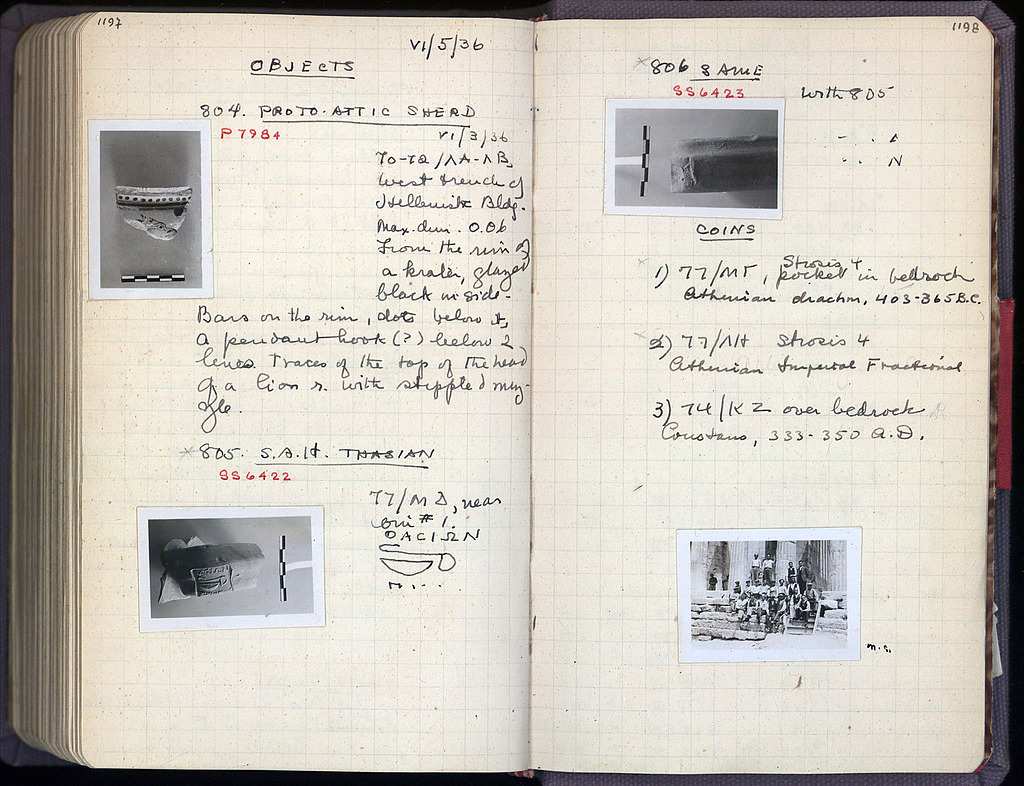 1197
VI/5/36
OBJECTS
804. PROTO-ATTIC SHERD
P 7984
VI/3/36
70-72/ΛΑ-ΛΒ,
West trench of
Hellenistic Bldg.
Max. dim. 0.06
From the rim of
a krater, glazed
black inside.
Bars on the rim, dots below it,
a pendant hook (?) below 2
lines. Traces of the top of the head
of a lion r. with stippled muz-
zle.
805. S.A.H. THASIAN
SS6422
77/ΜΔ, near
coin #1.
ΘΑCΙΩΝ
Μ...
1198
806 SAME
SS6423
With 805
N
COINS
Strosis 4
1) 77/ΜΓ, pocket in bedrock
Athenian drachm, 403-365 B.C.
2) 77/ΛΗ Strosis 4
Athenian Imperial Fractional
3) 74/ΚΖ over bedrock
Constans, 333-350 A.D.
m.c.